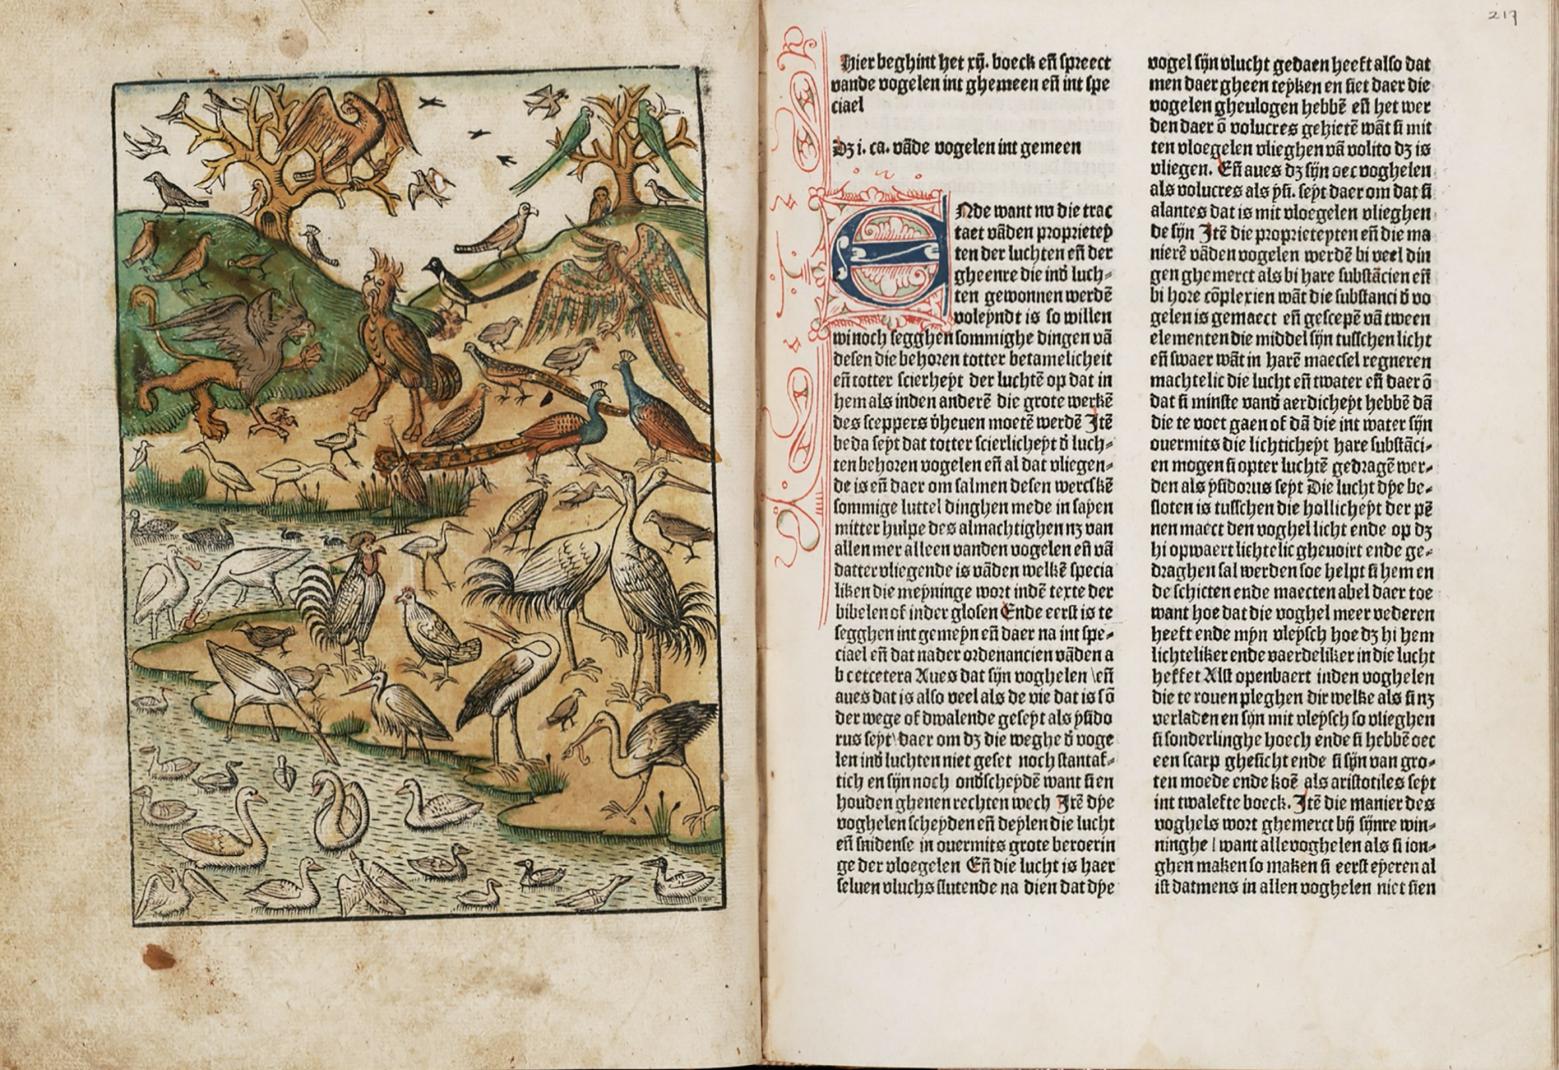 217
Hier beghint het xij. boeck en̄ spreect
vande vogelen int ghemeen en̄ int spe
ciael
Dz i. ca. vāde vogelen int gemeen
ENde want nv die trac
taet vādēn proprietey
ten der luchten en̄ der
gheenre die ind luch⸗
ten gewonnen werdē
voleyndt is so willen
wi noch segghen sommighe dingen vā
desen die behoren totter betamelicheit
en̄ totter scierheyt der luchtē op dat in
hem als inden anderē die grote werkē
des sceppers v̄heuen moetē werdē Itē
beda seyt dat totter scierlicheyt d̄ luch⸗
ten behoren vogelen en̄ al dat vliegen⸗
de is en̄ daer om salmen desen wercskē
sommige luttel dinghen mede in sayen
mitter hulpe des almachtighen nz van
allen mer alleen vanden vogelen en̄ vā
datter vliegende is vādēn welkē specia
liken die meyninge wort indē texte der
bibelen of inder glosen Ende eerst is te
segghen int gemeyn en̄ daer na int spe⸗
ciael en̄ dat na der ordenancien vādēn a
b c etcetera Aues dat sijn vogelen \en̄
aues dat is also veel als de vie dat is sō
der wege of dwalende geseyt als ysido
rus seyt\ daer om dz die weghe d̄ voge
len int luchten niet geset noch stantaf⸗
tich en sijn noch ondscheydē want si en
houden ghenen rechten wech Itē dye
voghelen scheyden en̄ deylen die lucht
en̄ snidense in ouermits grote beroerin
ge der vloegelen En̄ die lucht is haer
seluen vluchs slutende na dien dat dye
vogel sijn vlucht gedaen heeft also dat
men daer gheen teyken en siet daer die
vogelen gheulogen hebbē en̄ het wer
den daer ō volucres gehietē wāt si mit
ten vloegelen vlieghen vā volito dz is
vliegen. En̄ aues dz sijn oec voghelen
als volucres als ysi. seyt daer om dat si
alantes dat is mit vloegelen vlieghen
de sijn Itē die proprieteyten en̄ die ma
nierē vādēn vogelen werdē bi veel din
gen ghemerct als bi hare substācien en̄
bi hore cōplexien wāt die substanci d̄ vo
gelen is gemaect en̄ gescepē vā tween
elementen die middel sijn tusschen licht
en̄ swaer wāt in harē maecsel regneren
machtelic die lucht en̄ twater en̄ daer ō
dat si minste vand aerdicheyt hebbē dā
die te voet gaen of dā die int water sijn
ouermits die lichticheyt hare substāci⸗
en mogen si opter luchtē gedragē wer⸗
den als ysidorus seyt Die lucht dye be⸗
sloten is tusschen die hollicheyt der pē
nen maect den voghel licht ende op dz
hi opwaert lichtelic gheuoirt ende ge⸗
draghen sal werden soe helpt si hem en
de schicten ende maecten abel daer toe
want hoe dat die voghel meer vederen
heeft ende myn vleysch hoe dz hi hem
lichteliker ende vaerdeliker in die lucht
heffet Alst openbaert inden voghelen
die te rouen pleghen dir welke als si nz
verladen en sijn mit vleysch so vlieghen
si sonderlinghe hoech ende si hebbē oec
een scarp ghesicht ende si sijn van gro⸗
ten moede ende koē als aristotiles seyt
int twalefte boeck. Itē die manier des
voghels wort ghemerct bij sijnre win⸗
ninghe / want alle voghelen als si ion⸗
ghen maken so maken si eerst eyeren al
ist datmens in allen voghelen niet sien